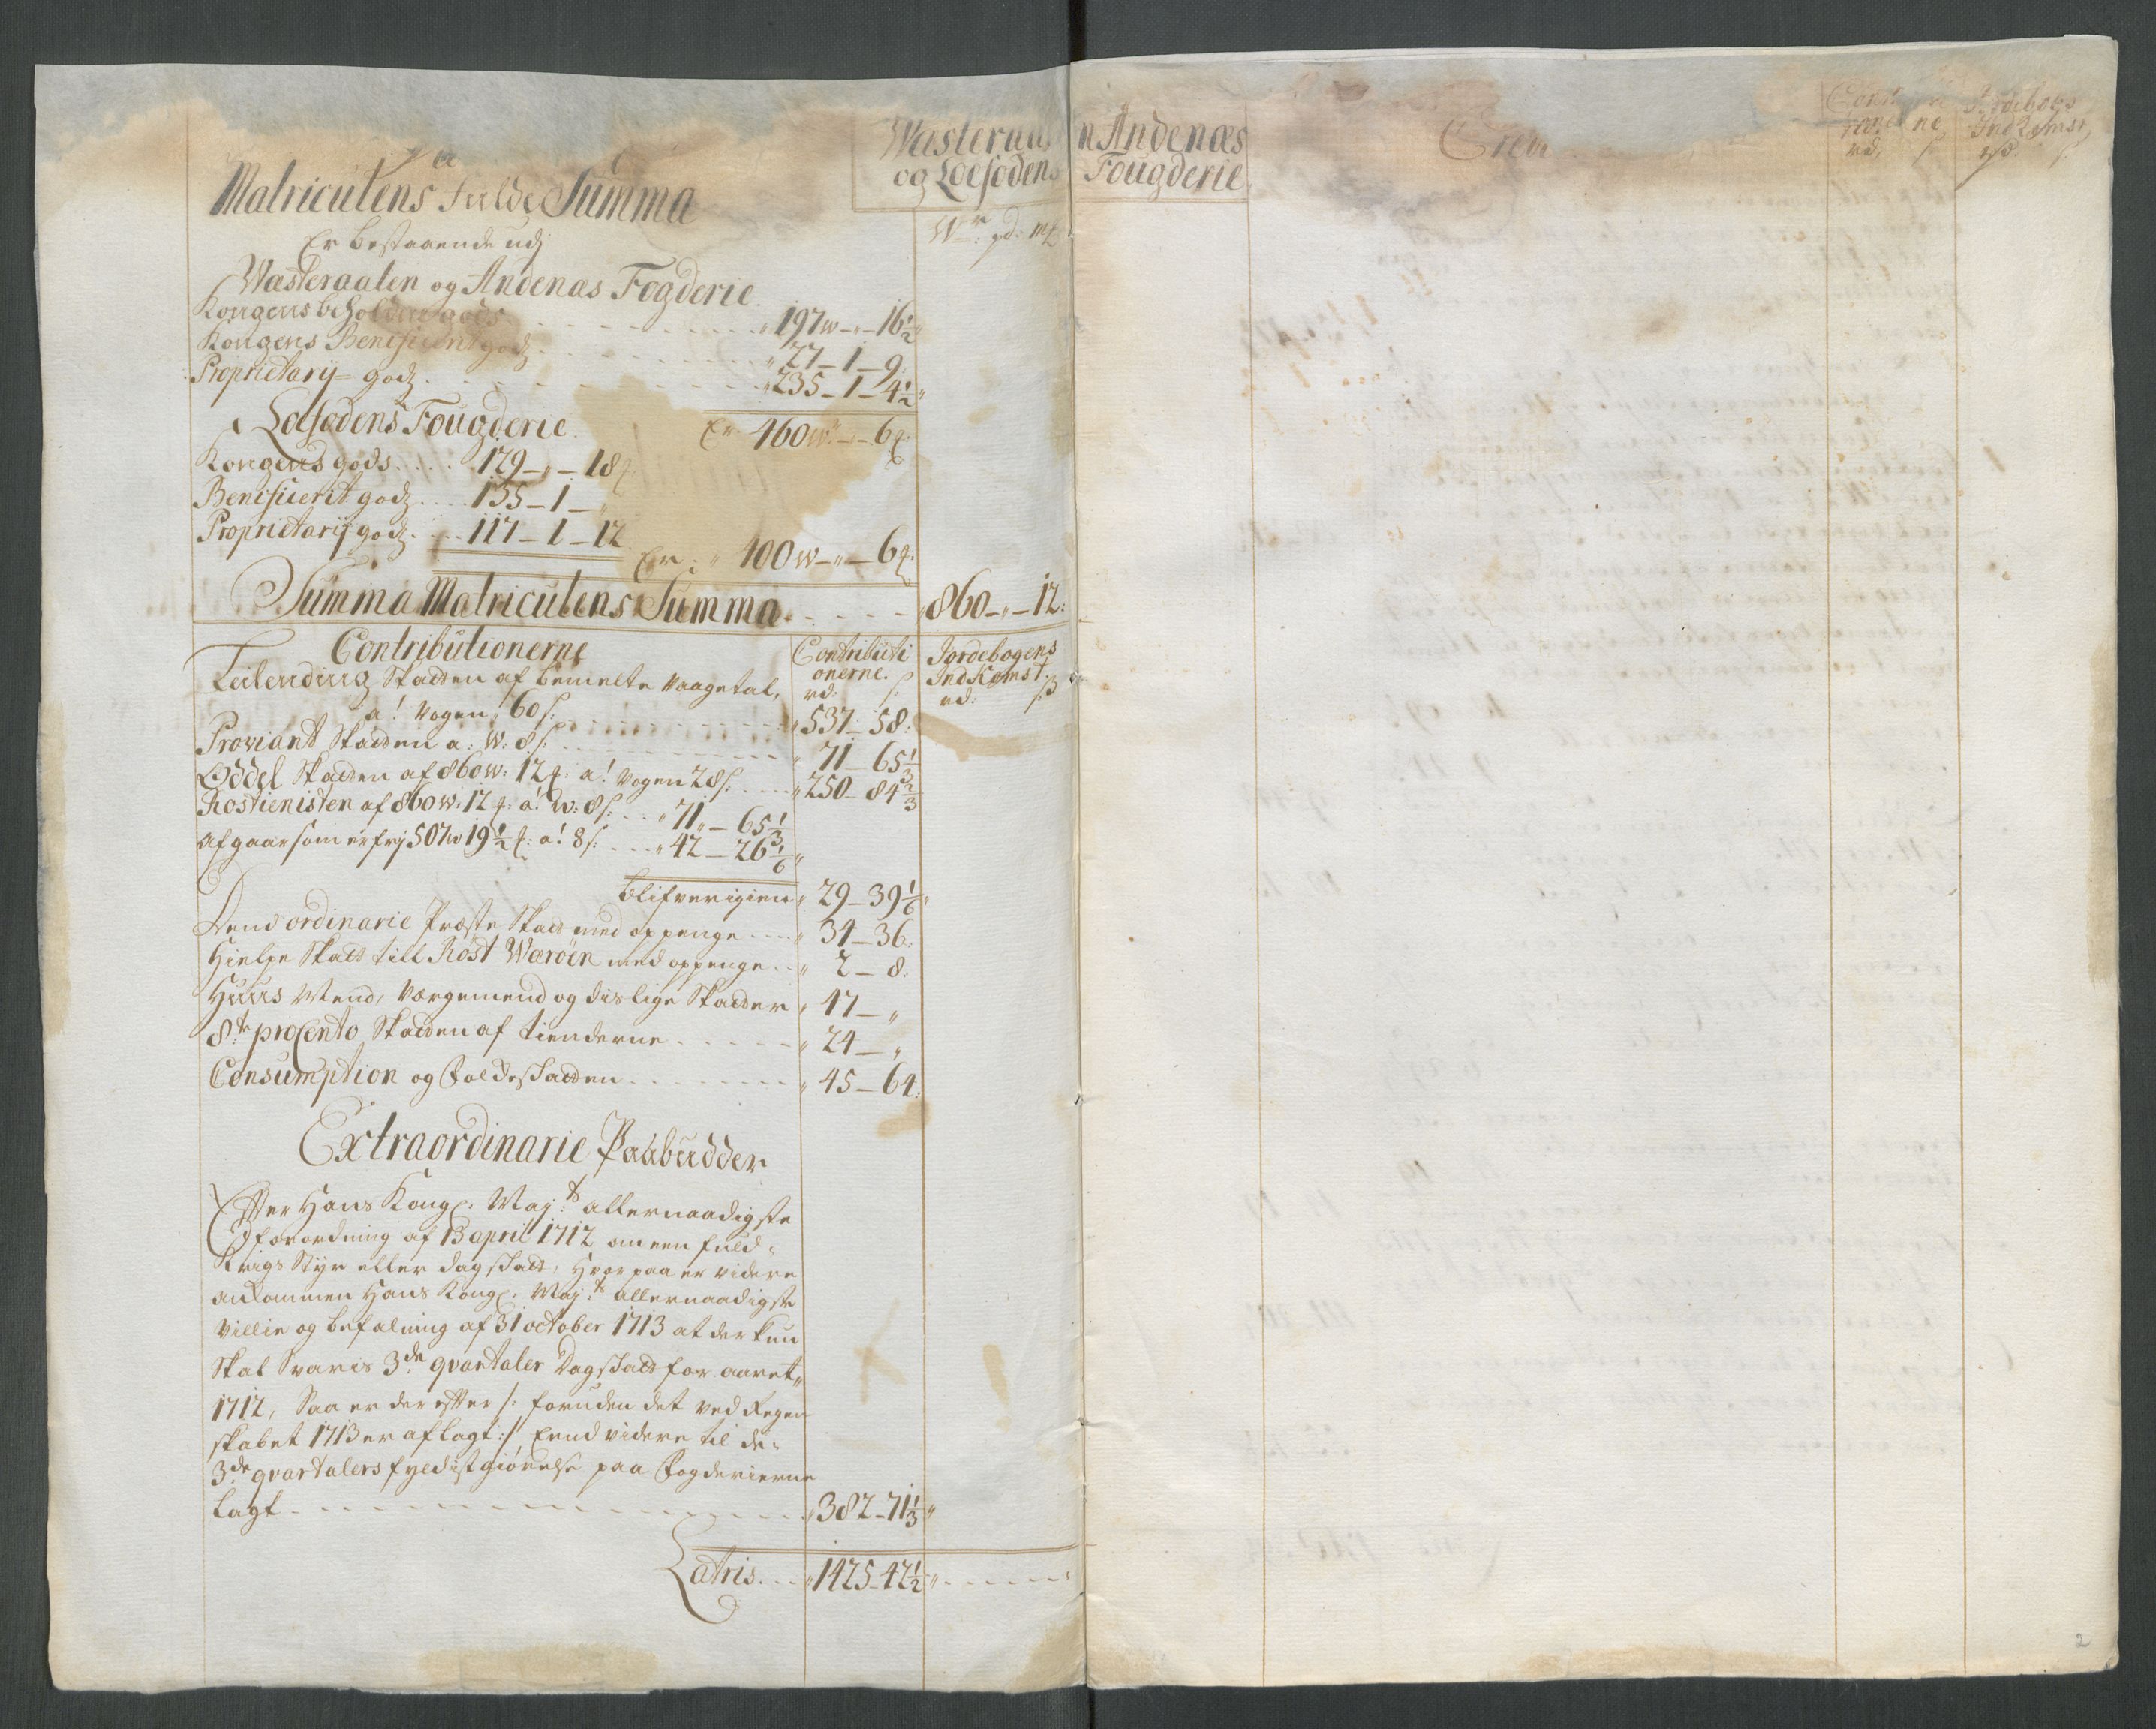 Wæsteraalen Andenæs
og Loefodens Fougderie
Matriculens fulde Summa
Er bestaaende udj
W: pd: m
Wæsteraalen og Andenæs Fogderie.
Kongens beholdne gods 197 w - „ - 16 1/2
Kongens Benificerit godz 27 - 1 - 9
Proprietarij godz 235 - 1 - 4 1/2
Er 460 w - „ - 6
Loefodens Fougderie.
Kongens gods 129 - „ - 18
Benificerit godz 155 - 1 - „
Proprietarij godz 117 - 1 - 12
Er „ 400 w - „ - 6
Summa Matriculens Summa 860 - „ - 12:
Contributionerne
Contributi
onerne.
rd: s
Jordebogens
IndKomst.
rd: s
Leilending Skatten af bemelte Vaagetal,
a! Vogen 60 s: 537 - 58:
Proviant Skatten a: W: 8 s: 71 - 65 1/3
Oddel Skatten af 860 w: 12 a! Vogen 28 s: 250 - 84 2/3
Rostienisten af 860 w: 12 a! w: 8 s: 71 - 65 1/3
Afgaar som er frj 507 w 19 1/2 a! 8 s: 42 - 26 1/6
blifver igien 29 - 39 1/6
Dend ordinarie Præste Skatt med oppenge 34 - 36:
Hielpe Skatt till Röst Wæröen med oppenge 2 - 8:
Huus Mend, Vergemend og dislige Skatter 47 - „
8te procento Skatten af tienderne 24 - „
Consumption og Foldeskatten 45 - 64:
Extraordinarie Paabudder
Efter Hans Kongl: May:ts allernaadigste
forordning af 13 april 1712 om een fuld
Krigs Styr eller dagskatt, hvor paa er videre
ankommen Hans Kongl: May:ts allernaadigste
villie og befalning af 31 october 1713 at der kun
Skal Svaris 3de qvartaler Dagskatt for aaret
1712, Saa er der efter /: foruden det ved Regen
skabet 1713 er aflagt :/ End videre til de
3de qvartalers fyldistgiørelse paa Fogderierne
lagt 382 - 71 1/3
Latris 1425 - 42 1/2
rd. s
Jordebogs
IndKomst
rd. s.
2